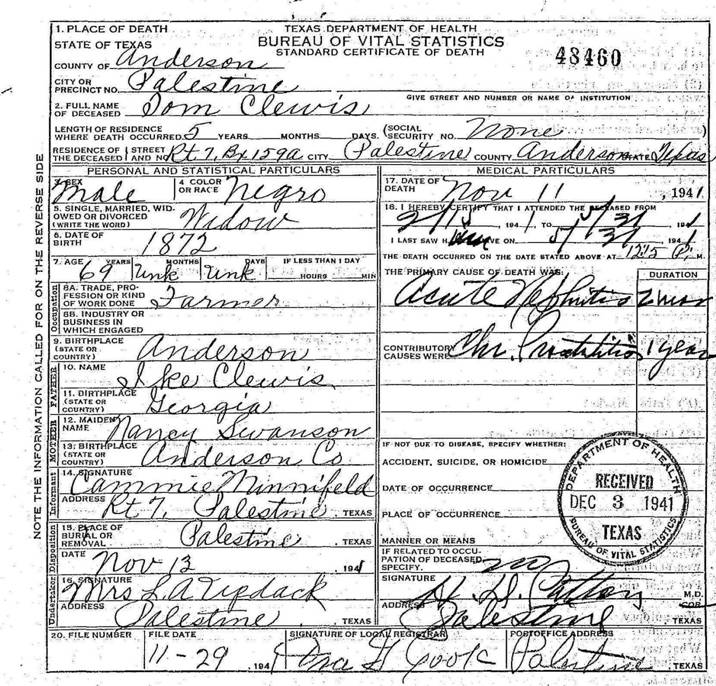 1. PLACE OF DEATH
STATE OF TEXAS
COUNTY OF Anderson
CITY OR
PRECINCT NO. Palestine
TEXAS DEPARTMENT OF HEALTH
BUREAU OF VITAL STATISTICS
STANDARD CERTIFICATE OF DEATH
48460
GIVE STREET AND NUMBER OR NAME OF INSTITUTION
2. FULL NAME
OF DECEASED Tom Clewis
LENGTH OF RESIDENCE
WHERE DEATH OCCURRED 5 YEARS MONTHS DAYS. (SOCIAL
SECURITY NO. None
RESIDENCE OF (STREET
THE DECEASED (AND NO. Rt 7, Bx 159a CITY Palestine COUNTY Anderson STATE Texas
NOTE THE INFORMATION CALLED FOR ON THE REVERSE SIDE
PERSONAL AND STATISTICAL PARTICULARS
3. SEX Male
4 COLOR
OR RACE Negro
5. SINGLE, MARRIED, WID-
OWED OR DIVORCED
(WRITE THE WORD) Widow
6. DATE OF
BIRTH 1872
7. AGE YEARS MONTHS DAYS IF LESS THAN 1 DAY
69 Unk Unk HOURS MIN
Occupation
8A. TRADE, PRO-
FESSION OR KIND
OF WORK DONE Farmer
8B. INDUSTRY OR
BUSINESS IN
WHICH ENGAGED
9. BIRTHPLACE
(STATE OR
COUNTRY) Anderson
FATHER
10. NAME Ike Clewis
11. BIRTHPLACE
(STATE OR
COUNTRY) Georgia
MOTHER
12. MAIDEN
NAME Nancy Swanson
13. BIRTHPLACE
(STATE OR
COUNTRY) Anderson Co
Informant
14. SIGNATURE Cammie Minnifeld
ADDRESS Rt 7, Palestine TEXAS
Disposition
15. PLACE OF
BURIAL OR
REMOVAL Palestine TEXAS
DATE Nov 13 1941
Undertaker
16. SIGNATURE Mrs L A
ADDRESS Palestine TEXAS
MEDICAL PARTICULARS
17. DATE OF
DEATH Nov 11, 1941
18. I HEREBY CERTIFY THAT I ATTENDED THE DECEASED FROM
2/15 1941 TO 5/31 1941
I LAST SAW H im ALIVE ON 5/31 1941
THE DEATH OCCURRED ON THE DATE STATED ABOVE AT 12:15 P. M.
THE PRIMARY CAUSE OF DEATH WAS: DURATION
Acute Nephritis 2 mos
CONTRIBUTORY
CAUSES WERE Chr. Prostatitis 1 year
IF NOT DUE TO DISEASE, SPECIFY WHETHER:
ACCIDENT, SUICIDE, OR HOMICIDE
DATE OF OCCURRENCE
PLACE OF OCCURRENCE
MANNER OR MEANS
IF RELATED TO OCCU-
PATION OF DECEASED,
SPECIFY. no
SIGNATURE M.D.
COR.
ADDRESS Palestine TEXAS
DEPARTMENT OF HEALTH
RECEIVED
DEC 3 1941
TEXAS
BUREAU OF VITAL STATISTICS
20. FILE NUMBER
FILE DATE
11-29 1941
SIGNATURE OF LOCAL REGISTRAR
Cook
POSTOFFICE ADDRESS
Palestine TEXAS